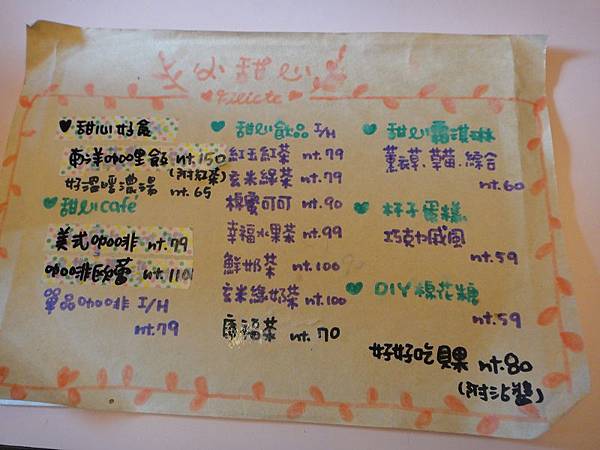 小甜心
♥甜心好食
南洋咖哩飯 nt.150
(附紅茶)
好溫暖濃湯 nt.65
♥甜心café
美式咖啡 nt.79
咖啡歐蕾 nt.110
單品咖啡 I/H
nt.79
♥甜心飲品 I/H
紅玉紅茶 nt.79
玄米綠茶 nt.79
棉蜜可可 nt.90
幸福水果茶 nt.99
鮮奶茶 nt.100
玄米綠奶茶 nt.100
康福茶 nt.70
♥甜心霜淇淋
薰衣草、草莓、綜合
nt.60
♥杯子蛋糕
巧克力戚風
nt.59
♥DIY棉花糖
nt.59
好好吃貝果 nt.80
(附沾醬)